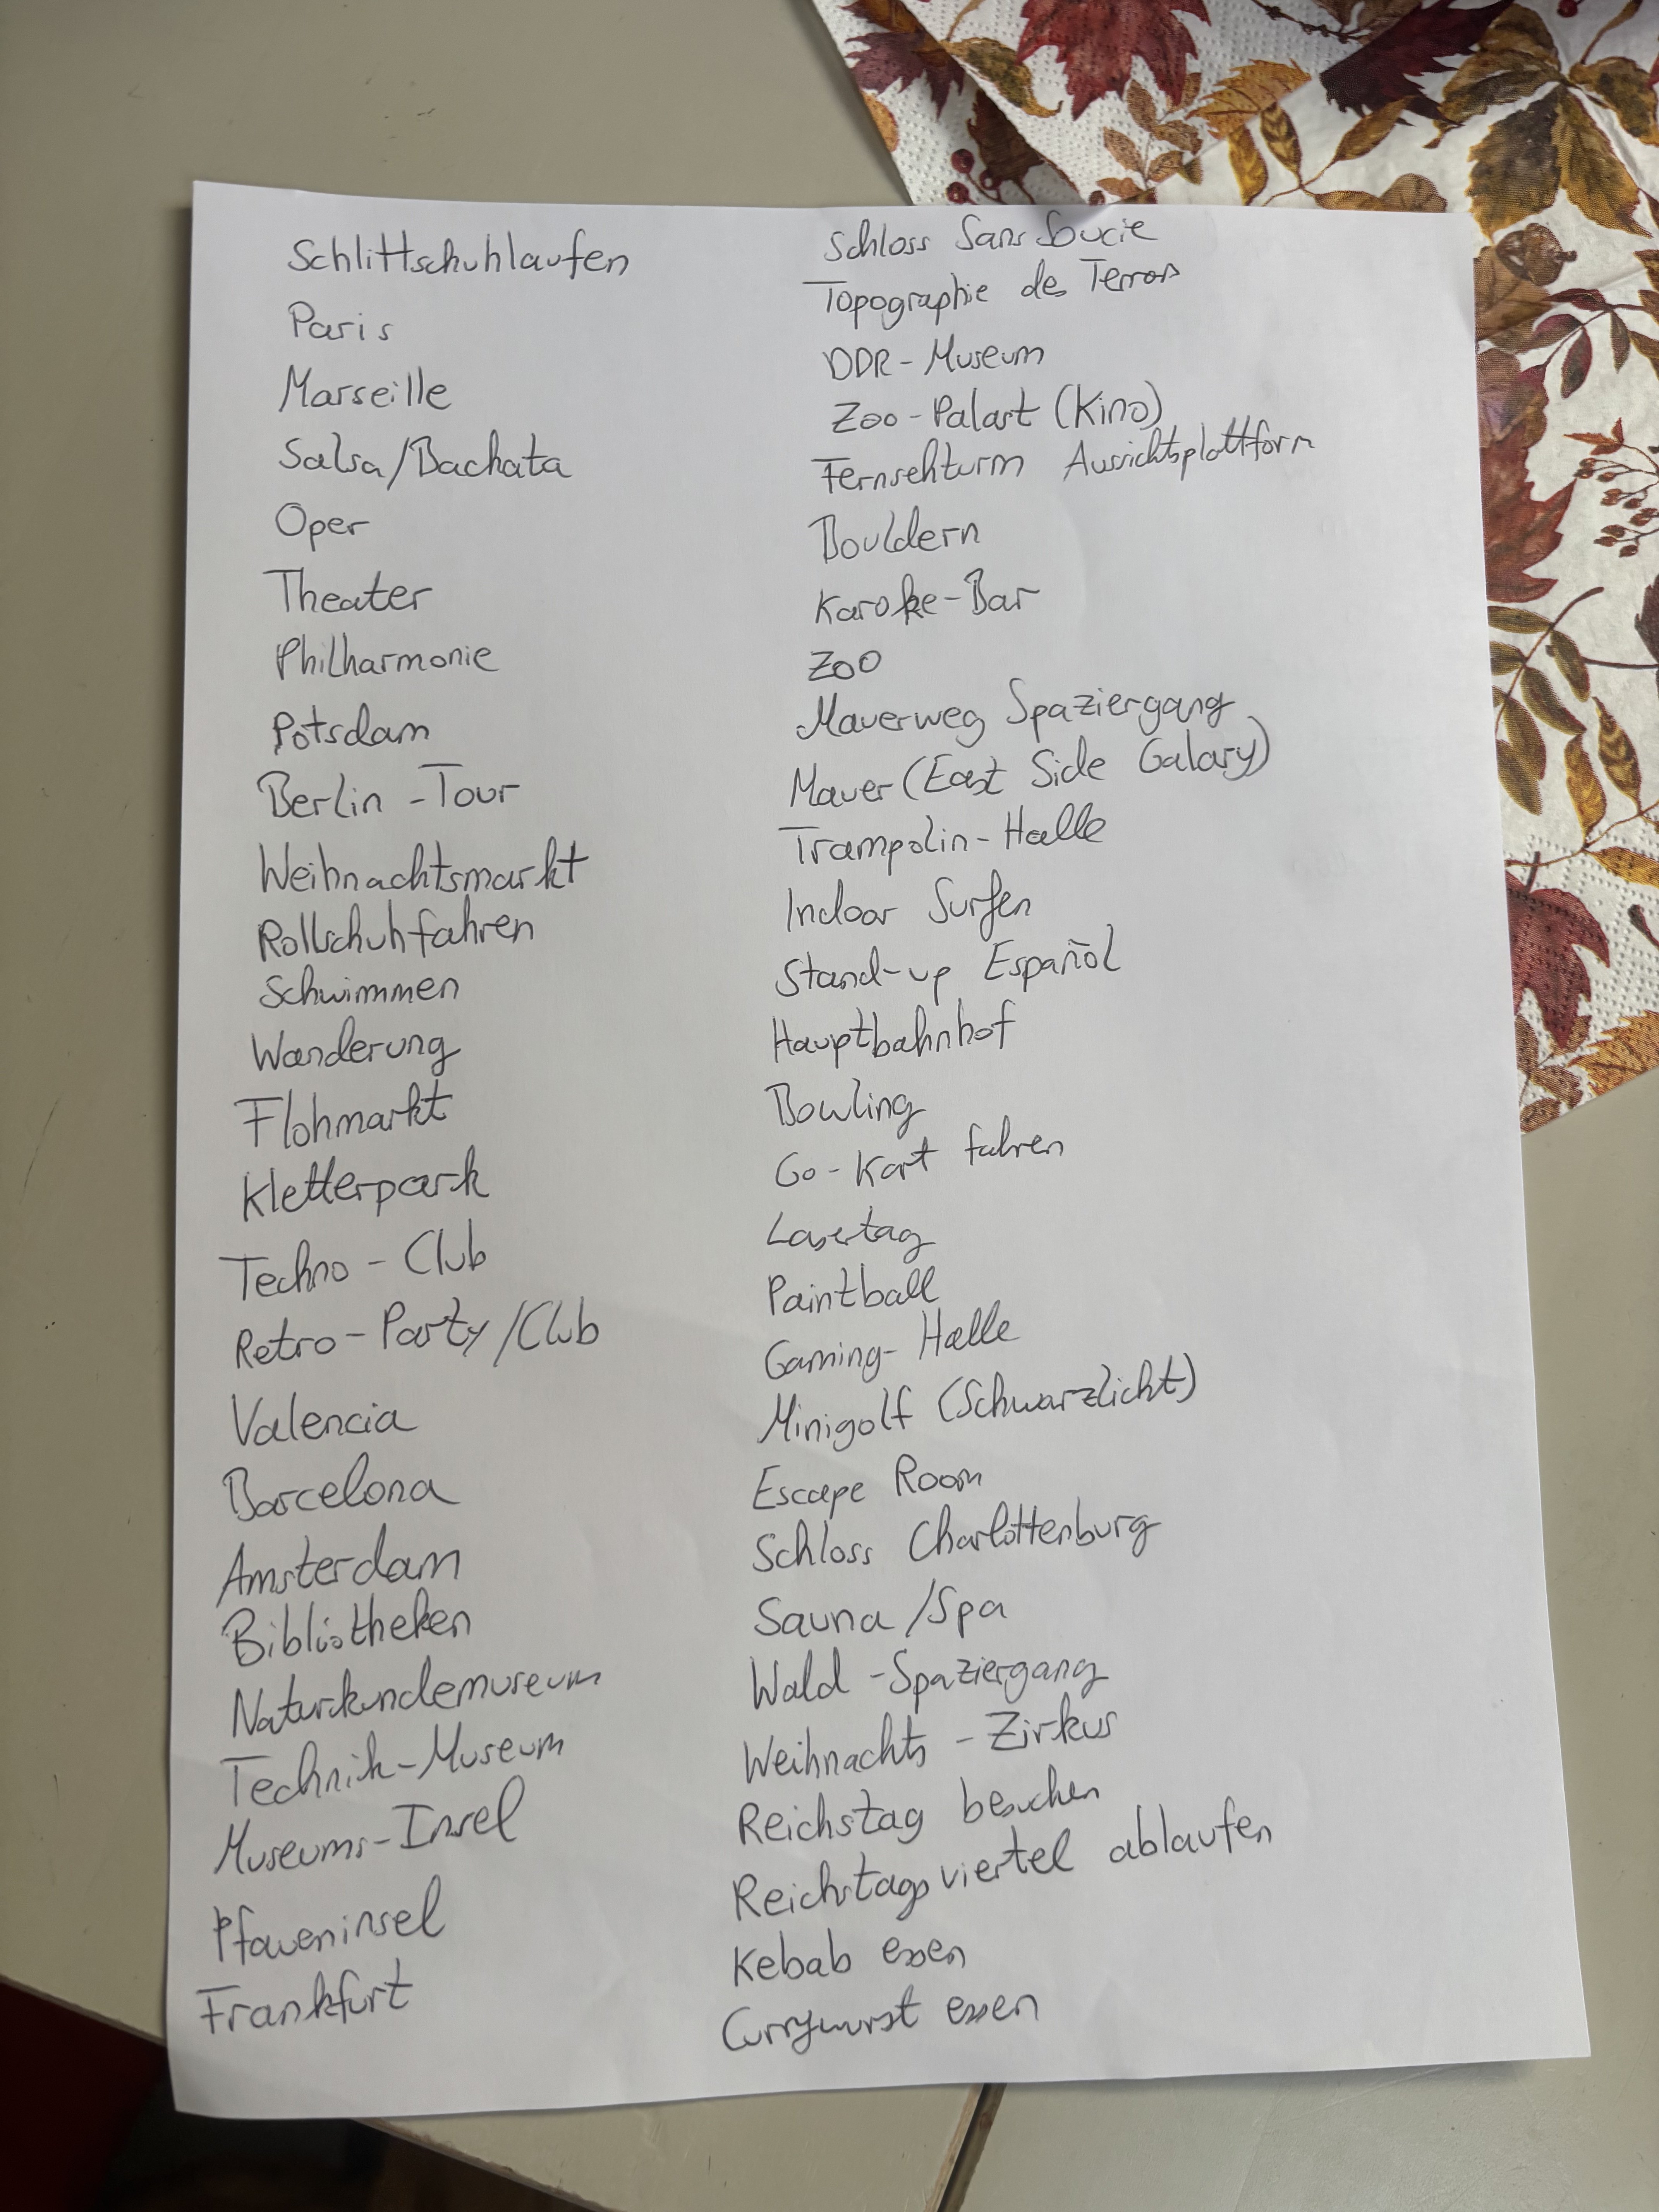 Schlittschuhlaufen
Paris
Marseille
Salsa/Bachata
Oper
Theater
Philharmonie
Potsdam
Berlin-Tour
Weihnachtsmarkt
Rollschuhfahren
Schwimmen
Wanderung
Flohmarkt
Kletterpark
Techno-Club
Retro-Party/Club
Valencia
Barcelona
Amsterdam
Bibliotheken
Naturkundemuseum
Technik-Museum
Museums-Insel
Pfaueninsel
Frankfurt
Schloss Sans Soucie
Topographie des Terrors
DDR-Museum
Zoo-Palast (Kino)
Fernsehturm Aussichtsplattform
Bouldern
Karoke-Bar
Zoo
Mauerweg Spaziergang
Mauer (East Side Galary)
Trampolin-Halle
Indoor Surfen
Stand-up Español
Hauptbahnhof
Bowling
Go-Kart fahren
Lasertag
Paintball
Gaming-Halle
Minigolf (Schwarzlicht)
Escape Room
Schloss Charlottenburg
Sauna/Spa
Wald-Spaziergang
Weihnachts-Zirkus
Reichstag besuchen
Reichstagsviertel ablaufen
Kebab essen
Currywurst essen